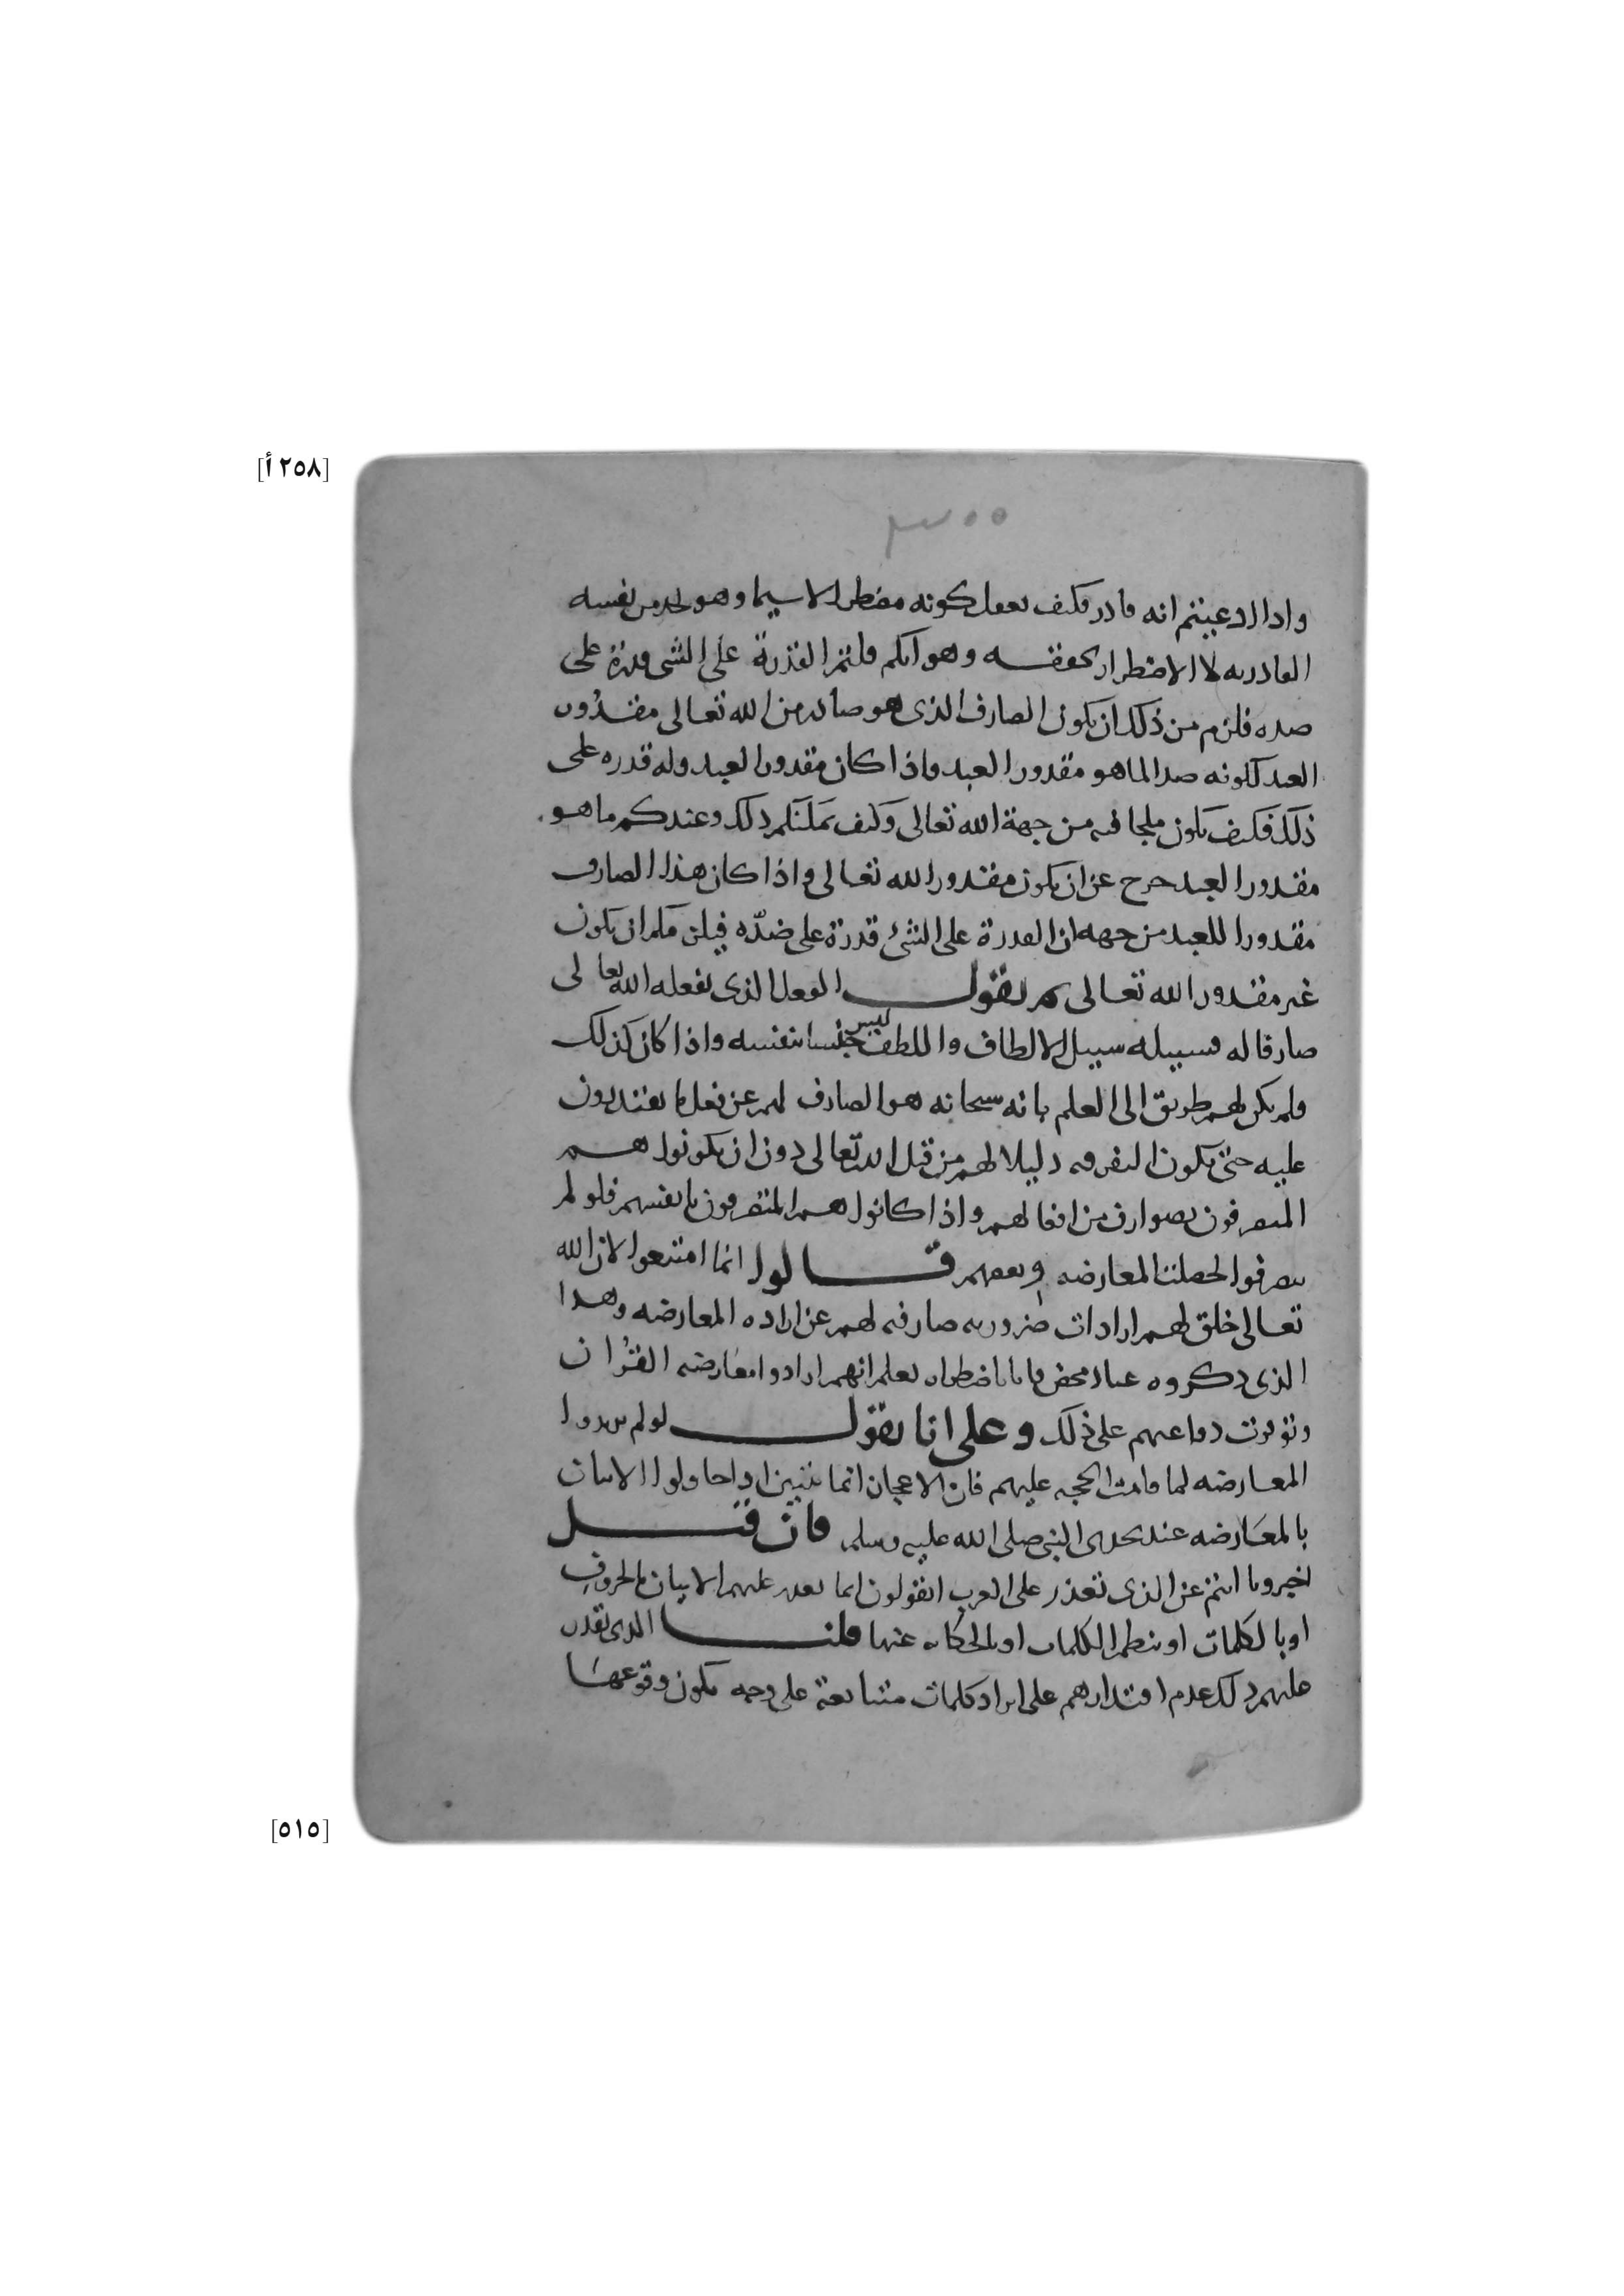 [٢٥٨ أ]
واذا ادعيتم انه قادر فكيف يعقل كونه مضطرا لا سيما وهو يجد من نفسه
القادرية لا الاضطرار وهو انكم قلتم القدرة على الشى قدرة على
ضده فلزم من ذلك ان يكون الصارف الذى هو من الله تعالى مقدور
العبد لكونه ضدا لما هو مقدور العبد واذا كان مقدور العبد وله قدره على
ذلك فكيف يكون ملجا فيه من جهة الله تعالى وكيف يمكنكم ذلك وعندكم ما هو
مقدور العبد خرج عن ان يكون مقدور الله تعالى واذا كان هذا الصارف
مقدورا للعبد من جهه ان القدرة على الشئ قدرة على ضدّه فيلزمكم ان يكون
غير مقدور الله تعالى ثم نقول الفعل الذى يفعله الله تعالى
صارفا له فسبيله سبيل الالطاف واللطف ليس جنسا بنفسه واذا كان كذلك
ولم يكن لهم طريق الى العلم بانه سبحانه هو الصارف لهم عن فعل ما يقتدرون
عليه حتى يكون الصرفه دليلا لهم من قبل الله تعالى دون ان يكونوا هم
المنصرفون بصوارف من افعالهم واذا كانوا هم المنصرفون بانفسهم فلو لم
ينصرفوا لحصلت المعارضه وبعضهم قالوا انما امتنعوا لان الله
تعالى خلق لهم ارادات ضروريه صارفه لهم عن اراده المعارضه وهذا
الذى ذكروه عناد محض فانا باضطرار نعلم انهم ارادوا معارضه القران
وتوفرت دواعيهم على ذلك وعلى انا نقول لو لم يريدوا
المعارضه لما قامت الحجه عليهم فان الاعجاز انما يتبين اذا حاولوا الاتيان
بالمعارضه عند تحدى النبى صلى الله عليه وسلم فان قيل
اخبرونا انتم عن الذى تعذر على العرب اتقولون انما تعذر عليهم الاتيان بالحروف
او بالكلمات او بنظم الكلمات او بالحكايه عنها قلنا الذى تعذر
عليهم ذلك عدم اقتدارهم على ايراد كلمات متتابعة على وجه يكون وقوعها
[٥١٥]